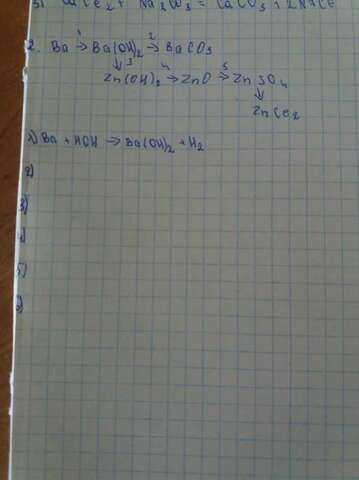 3) CaCl₂ + Na₂CO₃ = CaCO₃ + 2NaCl
2. Ba →¹ Ba(OH)₂ →² BaCO₃
↓3
Zn(OH)₂ →⁴ ZnO →⁵ ZnSO₄
↓
ZnCl₂
1) Ba + HOH → Ba(OH)₂ + H₂
2)
3)
4)
5)
6)